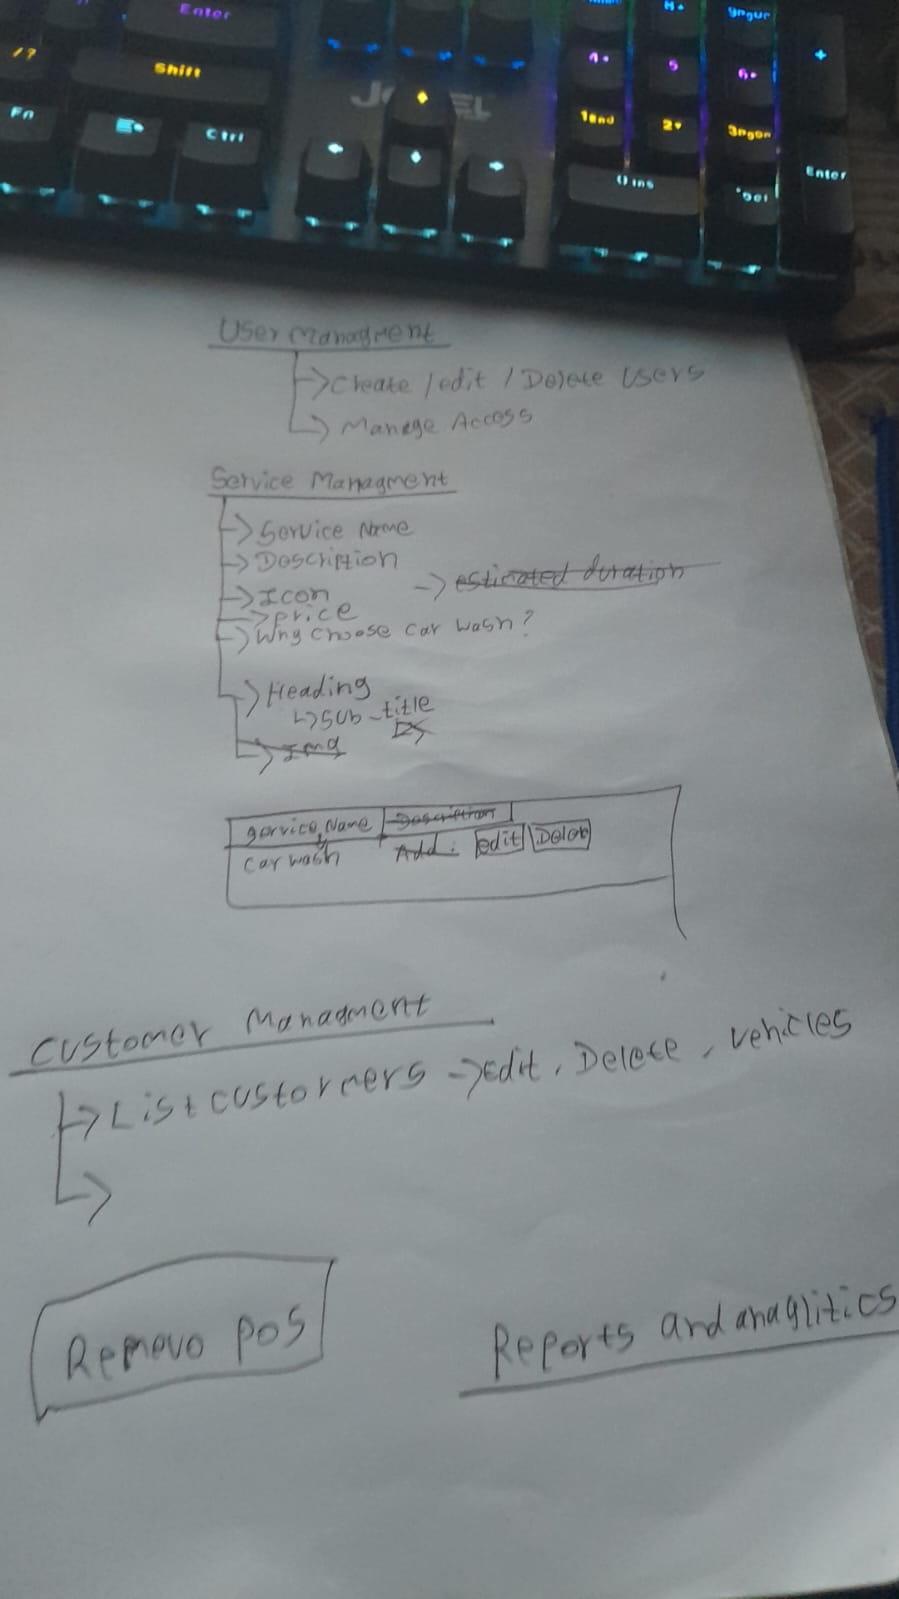 Enter
/ ?
Shift
Fn
Ctrl
4
5
6
+
1End
2
3pgdn
0ins
.Del
Enter
User Managment
→ Create / edit / Delete Users
→ Manage Access
Service Managment
→ Service Name
→ Description
→ estimated duration
→ Icon
→ price
→ Why choose car wash?
→ Heading
↳ sub-title
→ Img
Service Name | Description
car wash Add edit Delete
Customer Managment
→ List custormers → Edit, Delete, vehicles
→
Remove POS
Reports and anaglitics